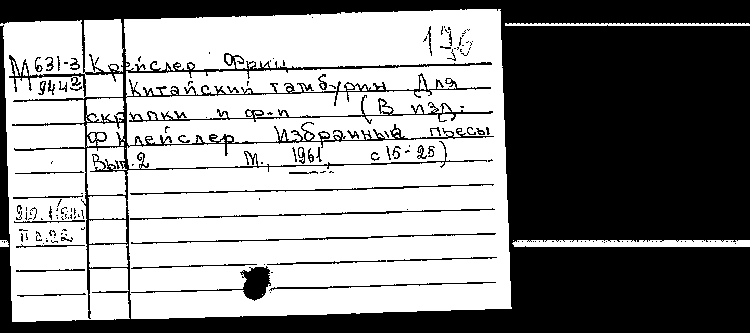 196
М 631-3 Крейслер, Фриц
9442 Китайский тамбурин Для
скрипки и ф-п (В изд:
Ф Клейслер Избранные пьесы
Вып.2 М., 1961, с 15-25)